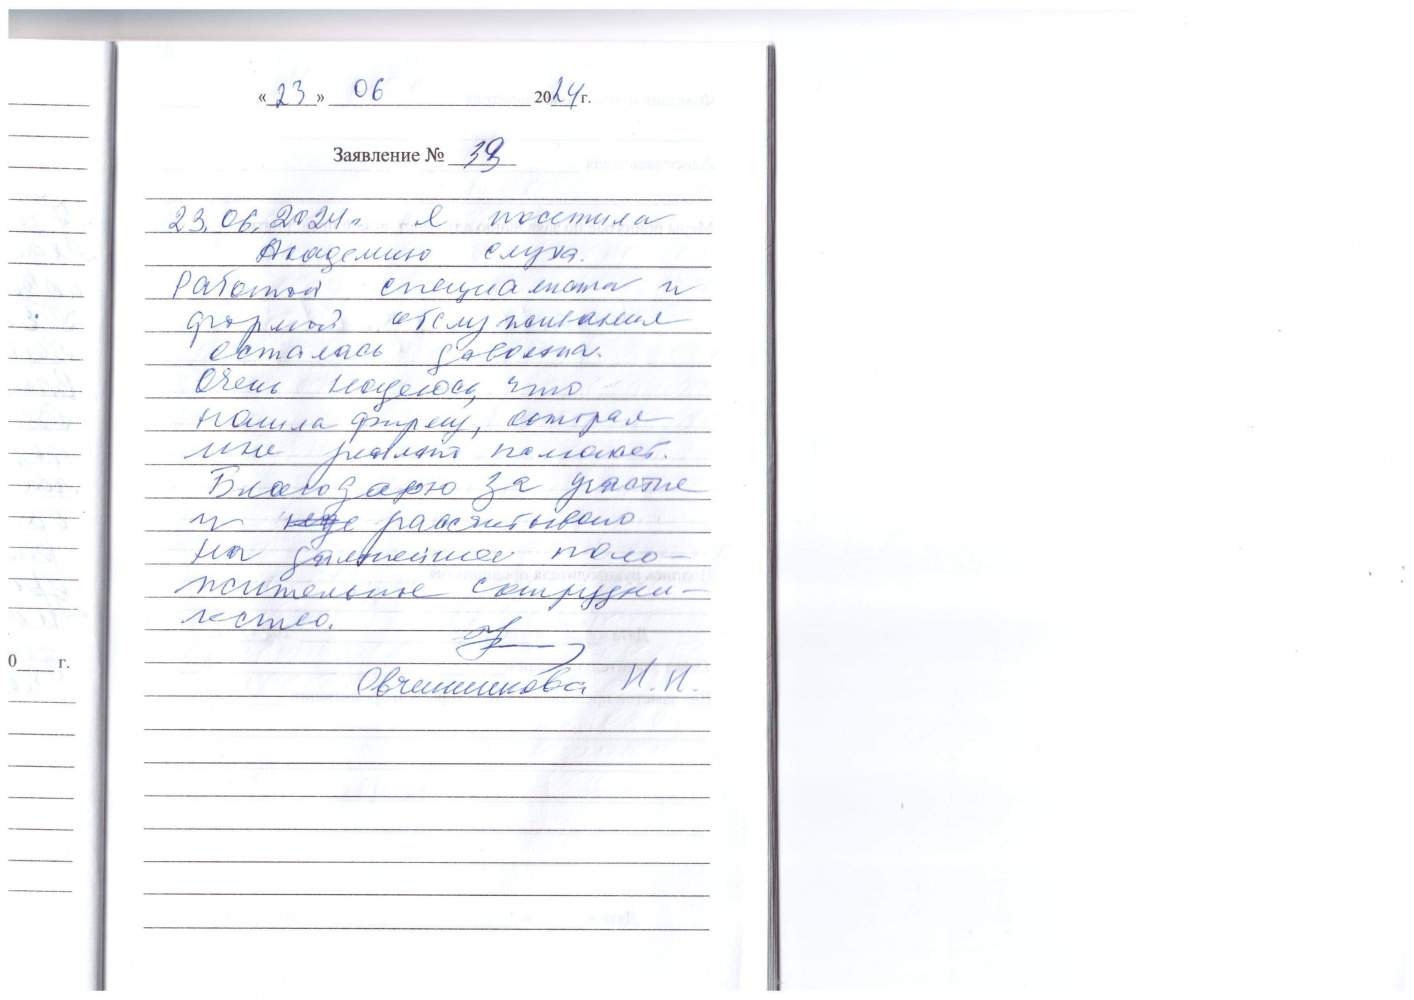 «23» 06 2024 г.
Заявление № 39
23.06.2024г. Я посетила
Академию слуха.
Работой специалиста и
формой обслуживания
осталась довольна.
Очень надеюсь, что
нашла фирму, которая
мне реально поможет.
Благодарю за участие
и рассчитываю
на дальнейшее поло-
жительное сотрудни-
чество.
Овчинникова Н.Н.
0____ г.